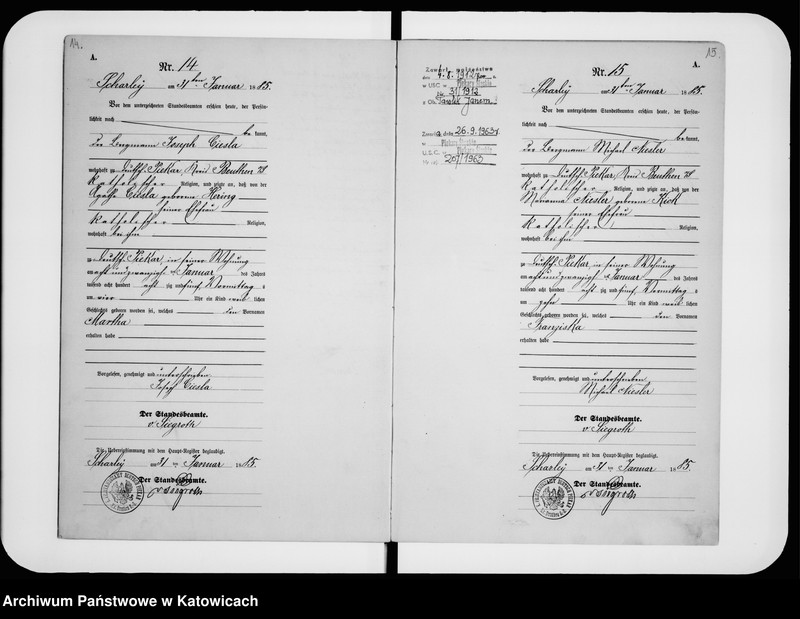 14.
A.
Nr. 14
Scharley am 31ten Januar 1885.
Vor dem unterzeichneten Standesbeamten erschien heute, der Persön-
lichkeit nach
be kannt,
der Bergmann Joseph Ciesla
wohnhaft zu Deutsch Piekar, Kreis Beuthen
katholischer Religion, und zeigte an, daß von der
Ciesla geborene Hering
seiner Ehefrau
katholischer Religion,
wohnhaft bei ihm
zu Deutsch Piekar in seiner Wohnung
am achtundzwanzigsten Januar des Jahres
tausend acht hundert achtzig und fünf Vormittag s
um vier Uhr ein Kind weib lichen
Geschlechts geboren worden sei, welches den Vornamen
Martha
erhalten habe
Vorgelesen, genehmigt und unterschrieben
Joseph Ciesla
Der Standesbeamte.
v. Siegroth
Die Uebereinstimmung mit dem Haupt-Register beglaubigt.
Scharley am 31 ten Januar 1885.
Der Standesbeamte.
v. Siegroth
15.
A.
Zawarł małżeństwo
dnia 4.8.1912
w USC
Nr 31/1912
z Ob. Janem
Zmarła dnia 26.9.1963 r.
U.S.C.
207/1963
Nr. 15
Scharley am 31ten Januar 1885.
Vor dem unterzeichneten Standesbeamten erschien heute, der Persön-
lichkeit nach
be kannt,
der Bergmann Michael Niesler
wohnhaft zu Deutsch Piekar, Kreis Beuthen
katholischer Religion, und zeigte an, daß von der
Marianna Niesler geborene Kick
seiner Ehefrau
katholischer Religion,
wohnhaft bei ihm
zu Deutsch Piekar in seiner Wohnung
am achtundzwanzigsten Januar des Jahres
tausend acht hundert achtzig und fünf Vormittag s
um zehn Uhr ein Kind weib lichen
Geschlechts geboren worden sei, welches den Vornamen
Franziska
erhalten habe
Vorgelesen, genehmigt und unterschrieben
Michael Niesler
Der Standesbeamte.
v. Siegroth
Die Uebereinstimmung mit dem Haupt-Register beglaubigt.
Scharley am 31 ten Januar 1885.
Der Standesbeamte.
v. Siegroth
Archiwum Państwowe w Katowicach